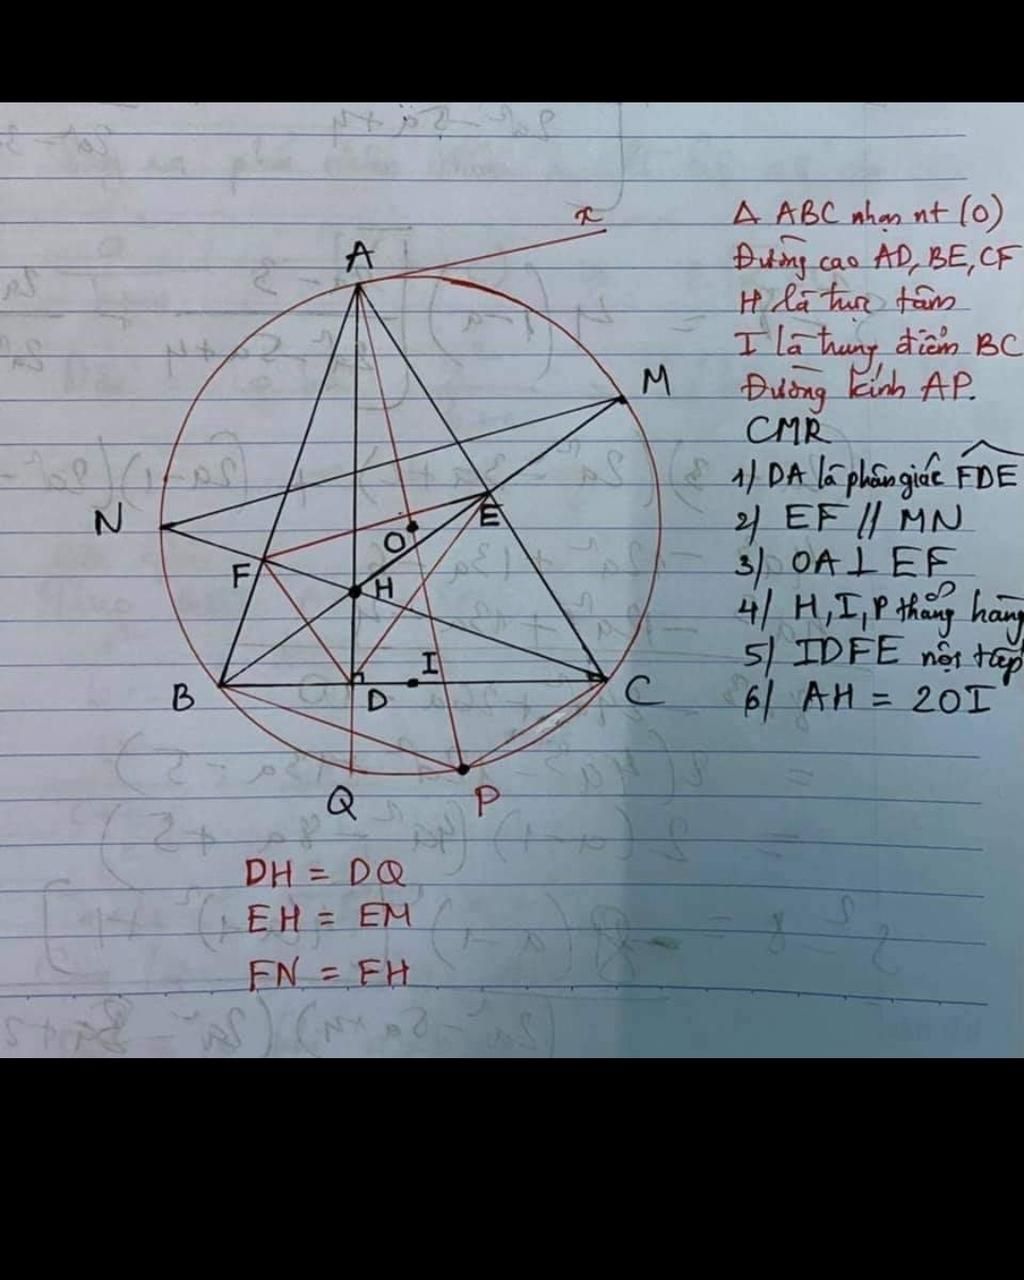 x
A
M
N
E
O
F
H
I
B
D
C
Q
P
Δ ABC nhọn nt (O)
Đường cao AD, BE, CF
H là trực tâm
I là trung điểm BC
Đường kính AP.
CMR
1) DA là phân giác FDE
2) EF // MN
3) OA ⊥ EF
4) H, I, P thẳng hàng
5) IDFE nội tiếp
6) AH = 2OI
DH = DQ
EH = EM
FN = FH